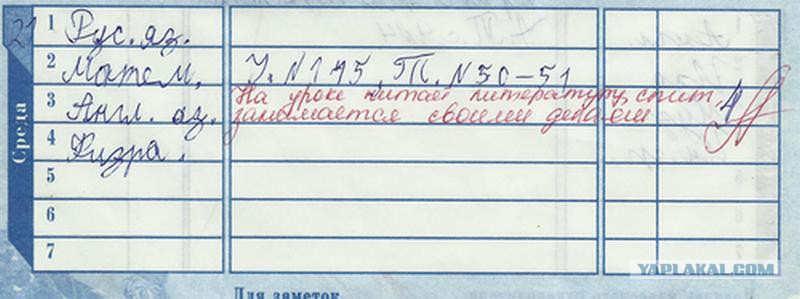 21
Среда
1 Рус. яз.
2 Матем. У. №145, Т. №50-51
3 Англ. яз. На уроке читает литературу, спит, 4
занимается своими делами
4 Физра.
5
6
7
Для заметок
YAPLAKAL.COM